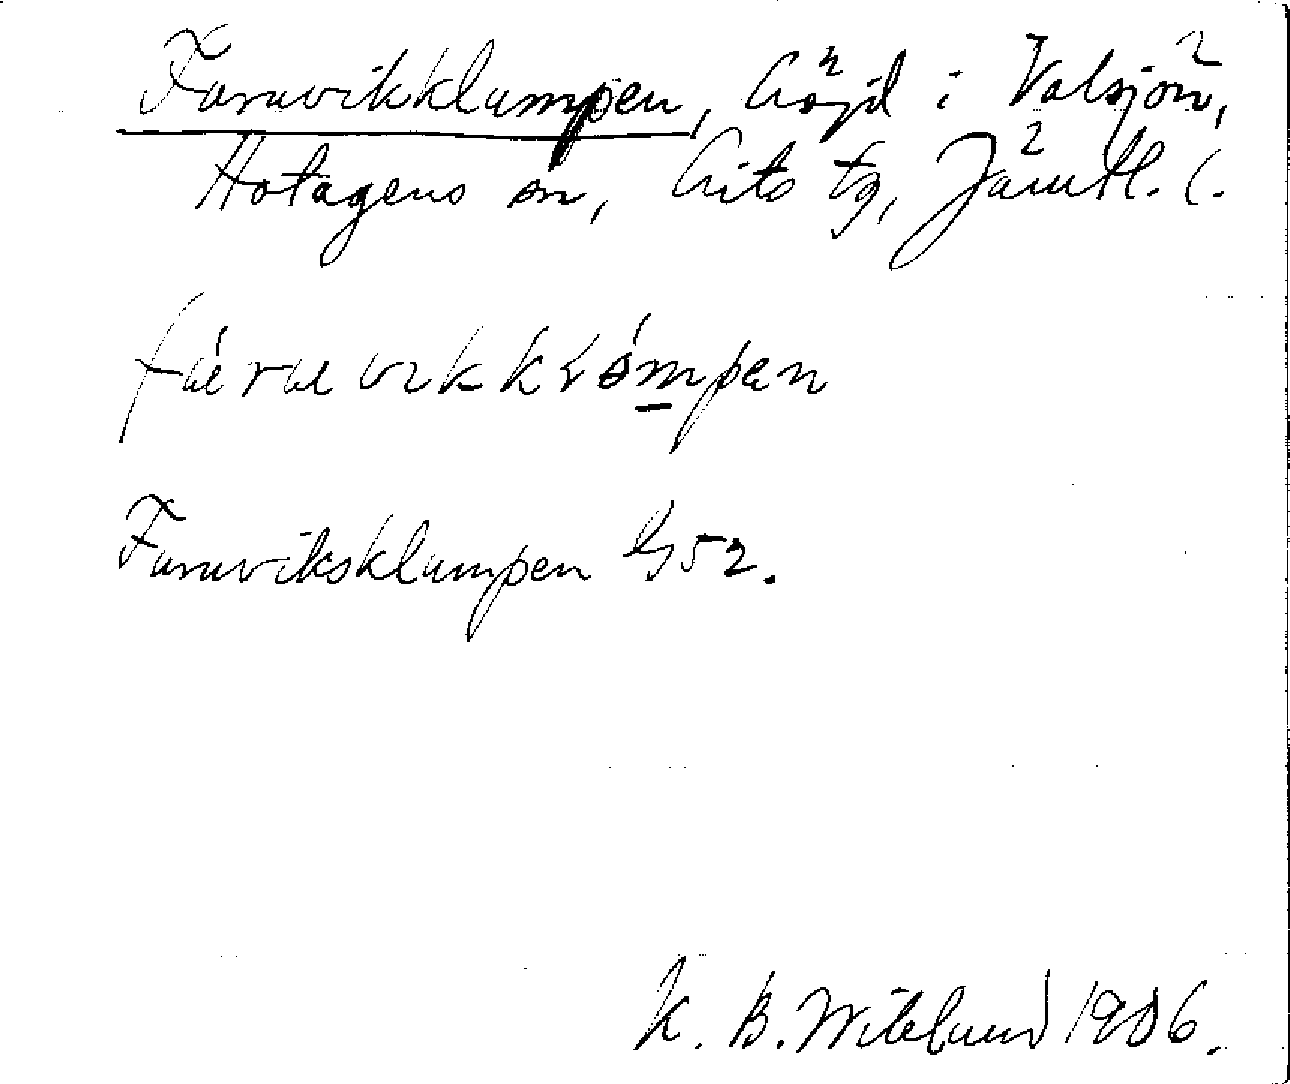 Faruvikklumpen, höjd i Valsjön,
Hotagens sn, Lits tg, Jämtl. l.
Faruviksklumpen G 52.
K. B. Wiklund 1906.